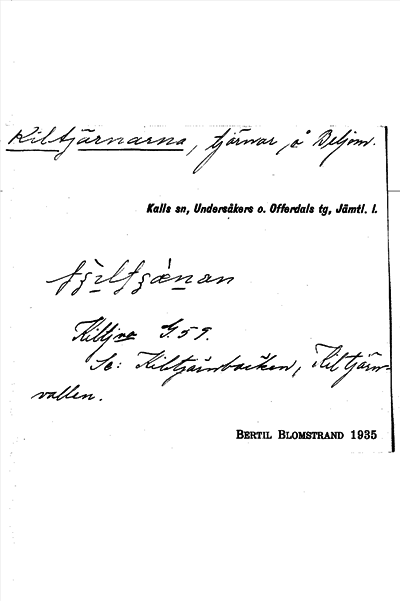 Kiltjärnarna, tjärnar å Beljom.
Kalls sn, Undersåkers o. Offerdals tg, Jämtl. l.
Kiltjne G. 59.
Se: Kiltjärnbacken, Kiltjärn-
vallen.
BERTIL BLOMSTRAND 1935